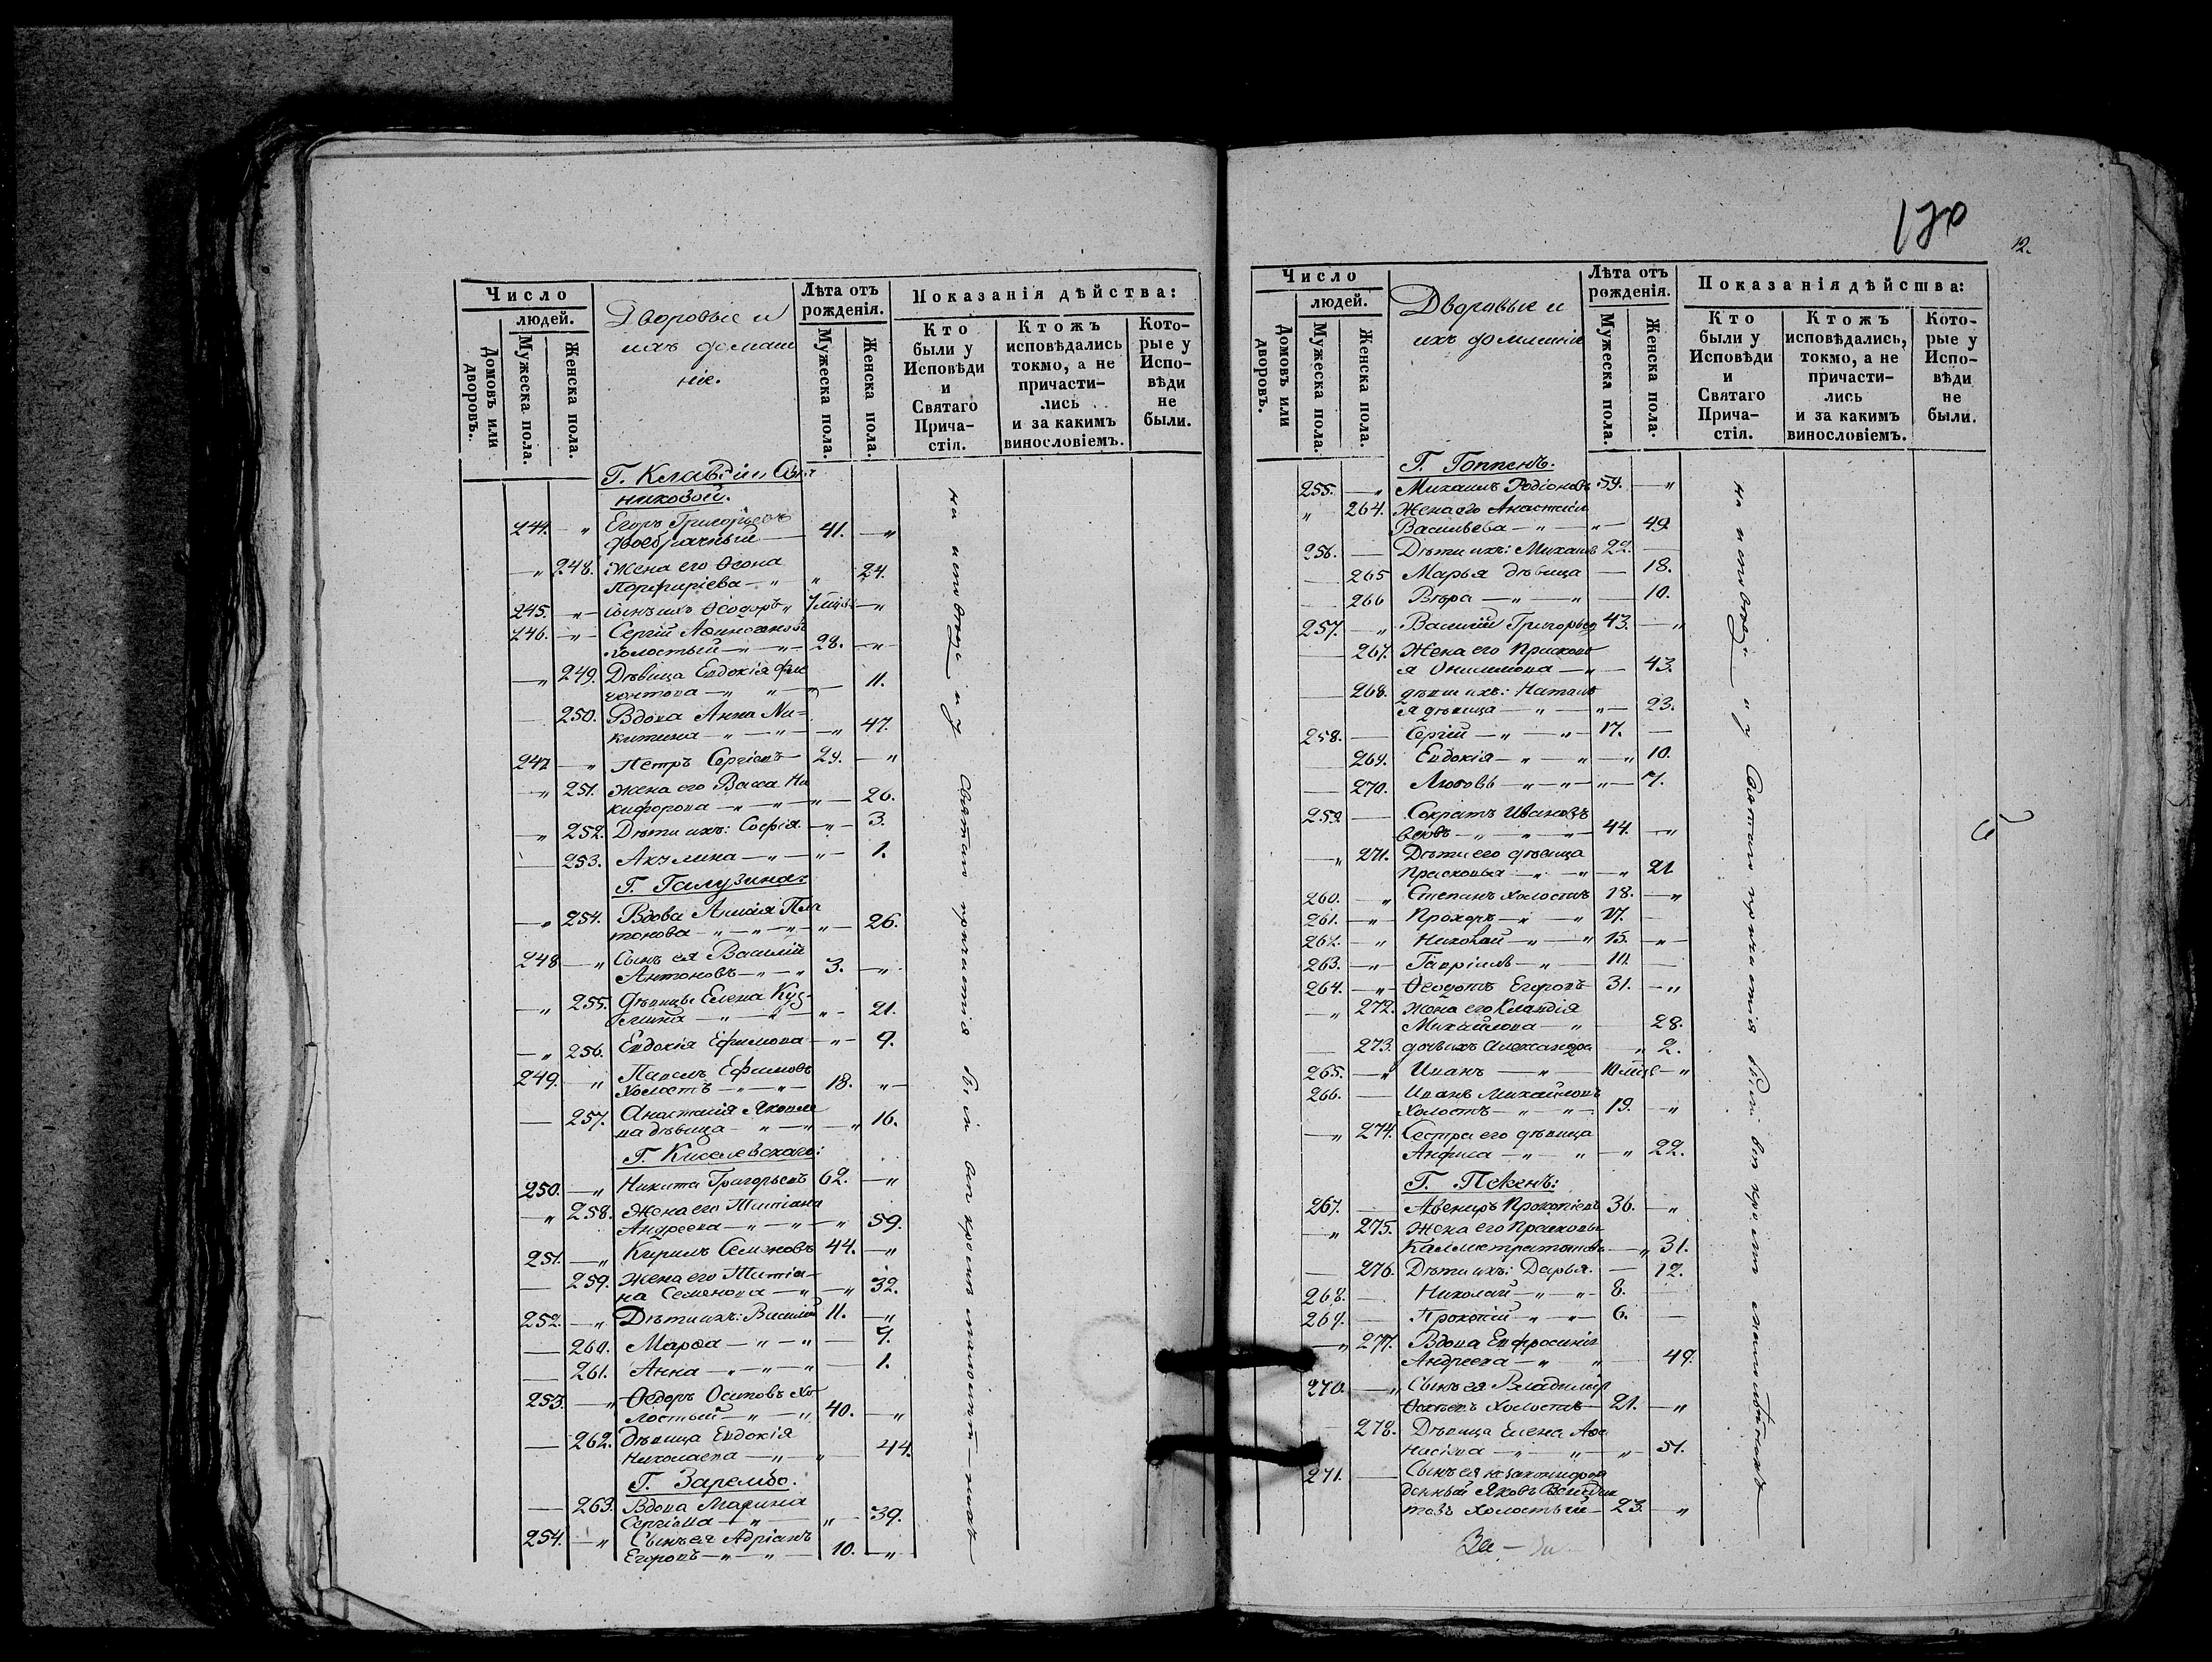 Число
людей.
Домовъ или дворовъ.
Мужеска пола.
Женска пола.
Дворовые и
ихъ домаш
ніе.
Лѣта отъ
рожденія.
Мужеска пола.
Женска пола.
Показанія дѣйства:
Кто
были у
Исповѣди
и
Святаго
Прича-
стія.
Ктожъ
исповѣдались
токмо, а не
причасти-
лись
и за какимъ
винословіемъ.
Кото-
рые у
Испо-
вѣди
не
были.
Г. Клавдіи
никовой.
244. — " Егоръ Григорьевъ
двоебрачный — 41. — "
— " 248. Жена его Ѳеона
Порфиріева — " " 24.
245. — " — Сынъ ихъ Ѳеодоръ " 7 мцъ — "
246. — " — Сергій Аѳиногеновъ
холостый — " — " — 28. — " —
— " 249. Дѣвица Евдокія
— " " — " — 11.
— 250. Вдова Анна Ни-
китина — " — " — " 47.
247 — " Петръ Сергіевъ — 29. — "
— " 251. Жена его Васса Ни
кифорова — " — " — " — 26.
— " 252. Дѣти ихъ: Софія. — " — 3.
— 253. Акулина — " — " — 1.
Г. Галузина:
— " 254. Вдова Агнія Пла
тонова — " — " — " — 26.
248 — " Сынъ ея Василій
Антоновъ — " — " 3. — "
— " 255. Дѣвицы Елена Куз-
мина — " — " — 21.
— " 256. Евдокія Ефимова — " — 9.
249. — " Павелъ Ефимовъ
Холостъ — " — " — 18. " —
— 257. Анастасія Яковле
ва дѣвица — " — " — " 16.
Г. Киселевскаго:
250. — " Никита Григорьевъ 62. — "
— " 258. Жена его Татіана
Андреева — " — " — " 59.
251. — " Кирилъ Семеновъ 44. — "
— 259. Жена его Татіа-
на Семенова — " — " 32.
252. — " Дѣти ихъ: Василій 11. — "
— 260. Марѳа — " — " — 9.
— 261. Анна — " — " — 1.
253. — " Ѳедоръ Осиповъ Хо
лостый — " — " 40. — "
— 262. Дѣвица Евдокія
Николаева — " — " 44.
Г. Зарембо.
— 263. Вдова Марина
Сергіева — " — " — 39.
254. — " Сынъ ея Адріанъ
Егоровъ — " — " — 10. — "
на исповѣди и у Святаго причастія
120
12.
Число
людей.
Домовъ или дворовъ.
Мужеска пола.
Женска пола.
Дворовые и
ихъ домашніе
Лѣта отъ
рожденія.
Мужеска пола.
Женска пола.
Показанія дѣйства:
Кто
были у
Исповѣди
и
Святаго
Прича-
стія.
Ктожъ
исповѣдались,
токмо, а не
причасти-
лись
и за какимъ
винословіемъ.
Кото-
рые у
Испо-
вѣди
не
были.
Г. Гоппенъ.
255. — " Михаилъ Родіоновъ 59. — "
" 264. Жена его Анастасія
Васильева — " — " — 49.
256. — Дѣти ихъ: Михаилъ 22. —
— 265 Марья дѣвица — 18.
— 266 Вѣра — " — " — 10.
257. — " Василій Григорьев 43. — "
— 267. Жена его Прасковь
я Онисимова — " — 43.
— 268. дѣти ихъ: Наталь
я дѣвица — " — " — 23.
258. — Сергій — " — " — 17. —
— 269. Евдокія — " — " — " 10.
— 270. Любовь — " — " " — 7.
259. — Сократъ Ивановъ
вдовъ — " " " 44. — "
— " 271. Дѣти его дѣвица
Прасковья — " — " — " 21.
260. — " Степанъ Холостъ 18. — "
261. — " — Прохоръ — " — " 17. —
262. — " Николай — " — " 15. — " —
263. — " — Гавріилъ — " — 10. —
264. — " — Ѳеодотъ Егоровъ 31. — "
— " 272. Жена его Клавдія
Михайлова — " — 28.
— 273. дочь ихъ Александра " 2.
265. — " Иванъ — " — 10 мцъ — "
266. — Иванъ Михайловъ
Холостъ — " — " — 19. — "
— " 274. Сестра его дѣвица
Анфиса — " — " — " 22.
Г. Пекенъ:
267. — Авениръ Прокопіевъ 36. — "
— " 275. Жена его Прасковья
Каллистратова — " 31.
— 276. Дѣти ихъ: Дарья. — 12.
268. — Николай — " — " 8. —
269. — Прокопій — " — " — 6. —
— " 277. Вдова Евфросинія
Андреева — " " — 49.
270. — " Сынъ ея Владиміръ
Холостъ — 21. — "
— 278. Дѣвица Елена Аѳа
насіева — " — " — " — 51.
271. — Сынъ ея незаконнорож
денный Яковъ
Холостый — 23. — "
на исповѣди и у Святаго причастія
За —